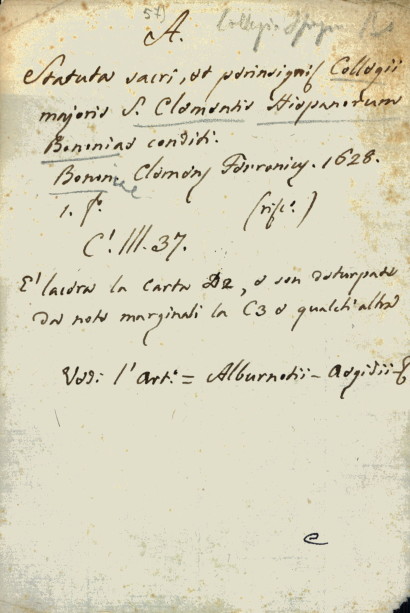 57)
A.
Statuta sacri, et perinsignis Collegii
majoris S. Clementis Hispanorum
Bononiae conditi.
Bononiae Clemens Ferronius. 1628.
1. f.º
C. III. 37.
E' lacera la carta D2, e son deturpate
da note marginali la C3 e qualch'altra
Vedi l'art.º = Albornotii - Aegidii -